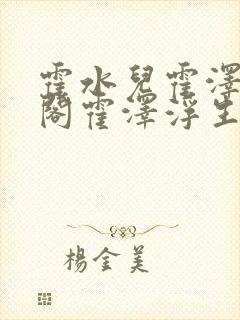 霍水兒霍澤
閣霍澤浮生
楊金美